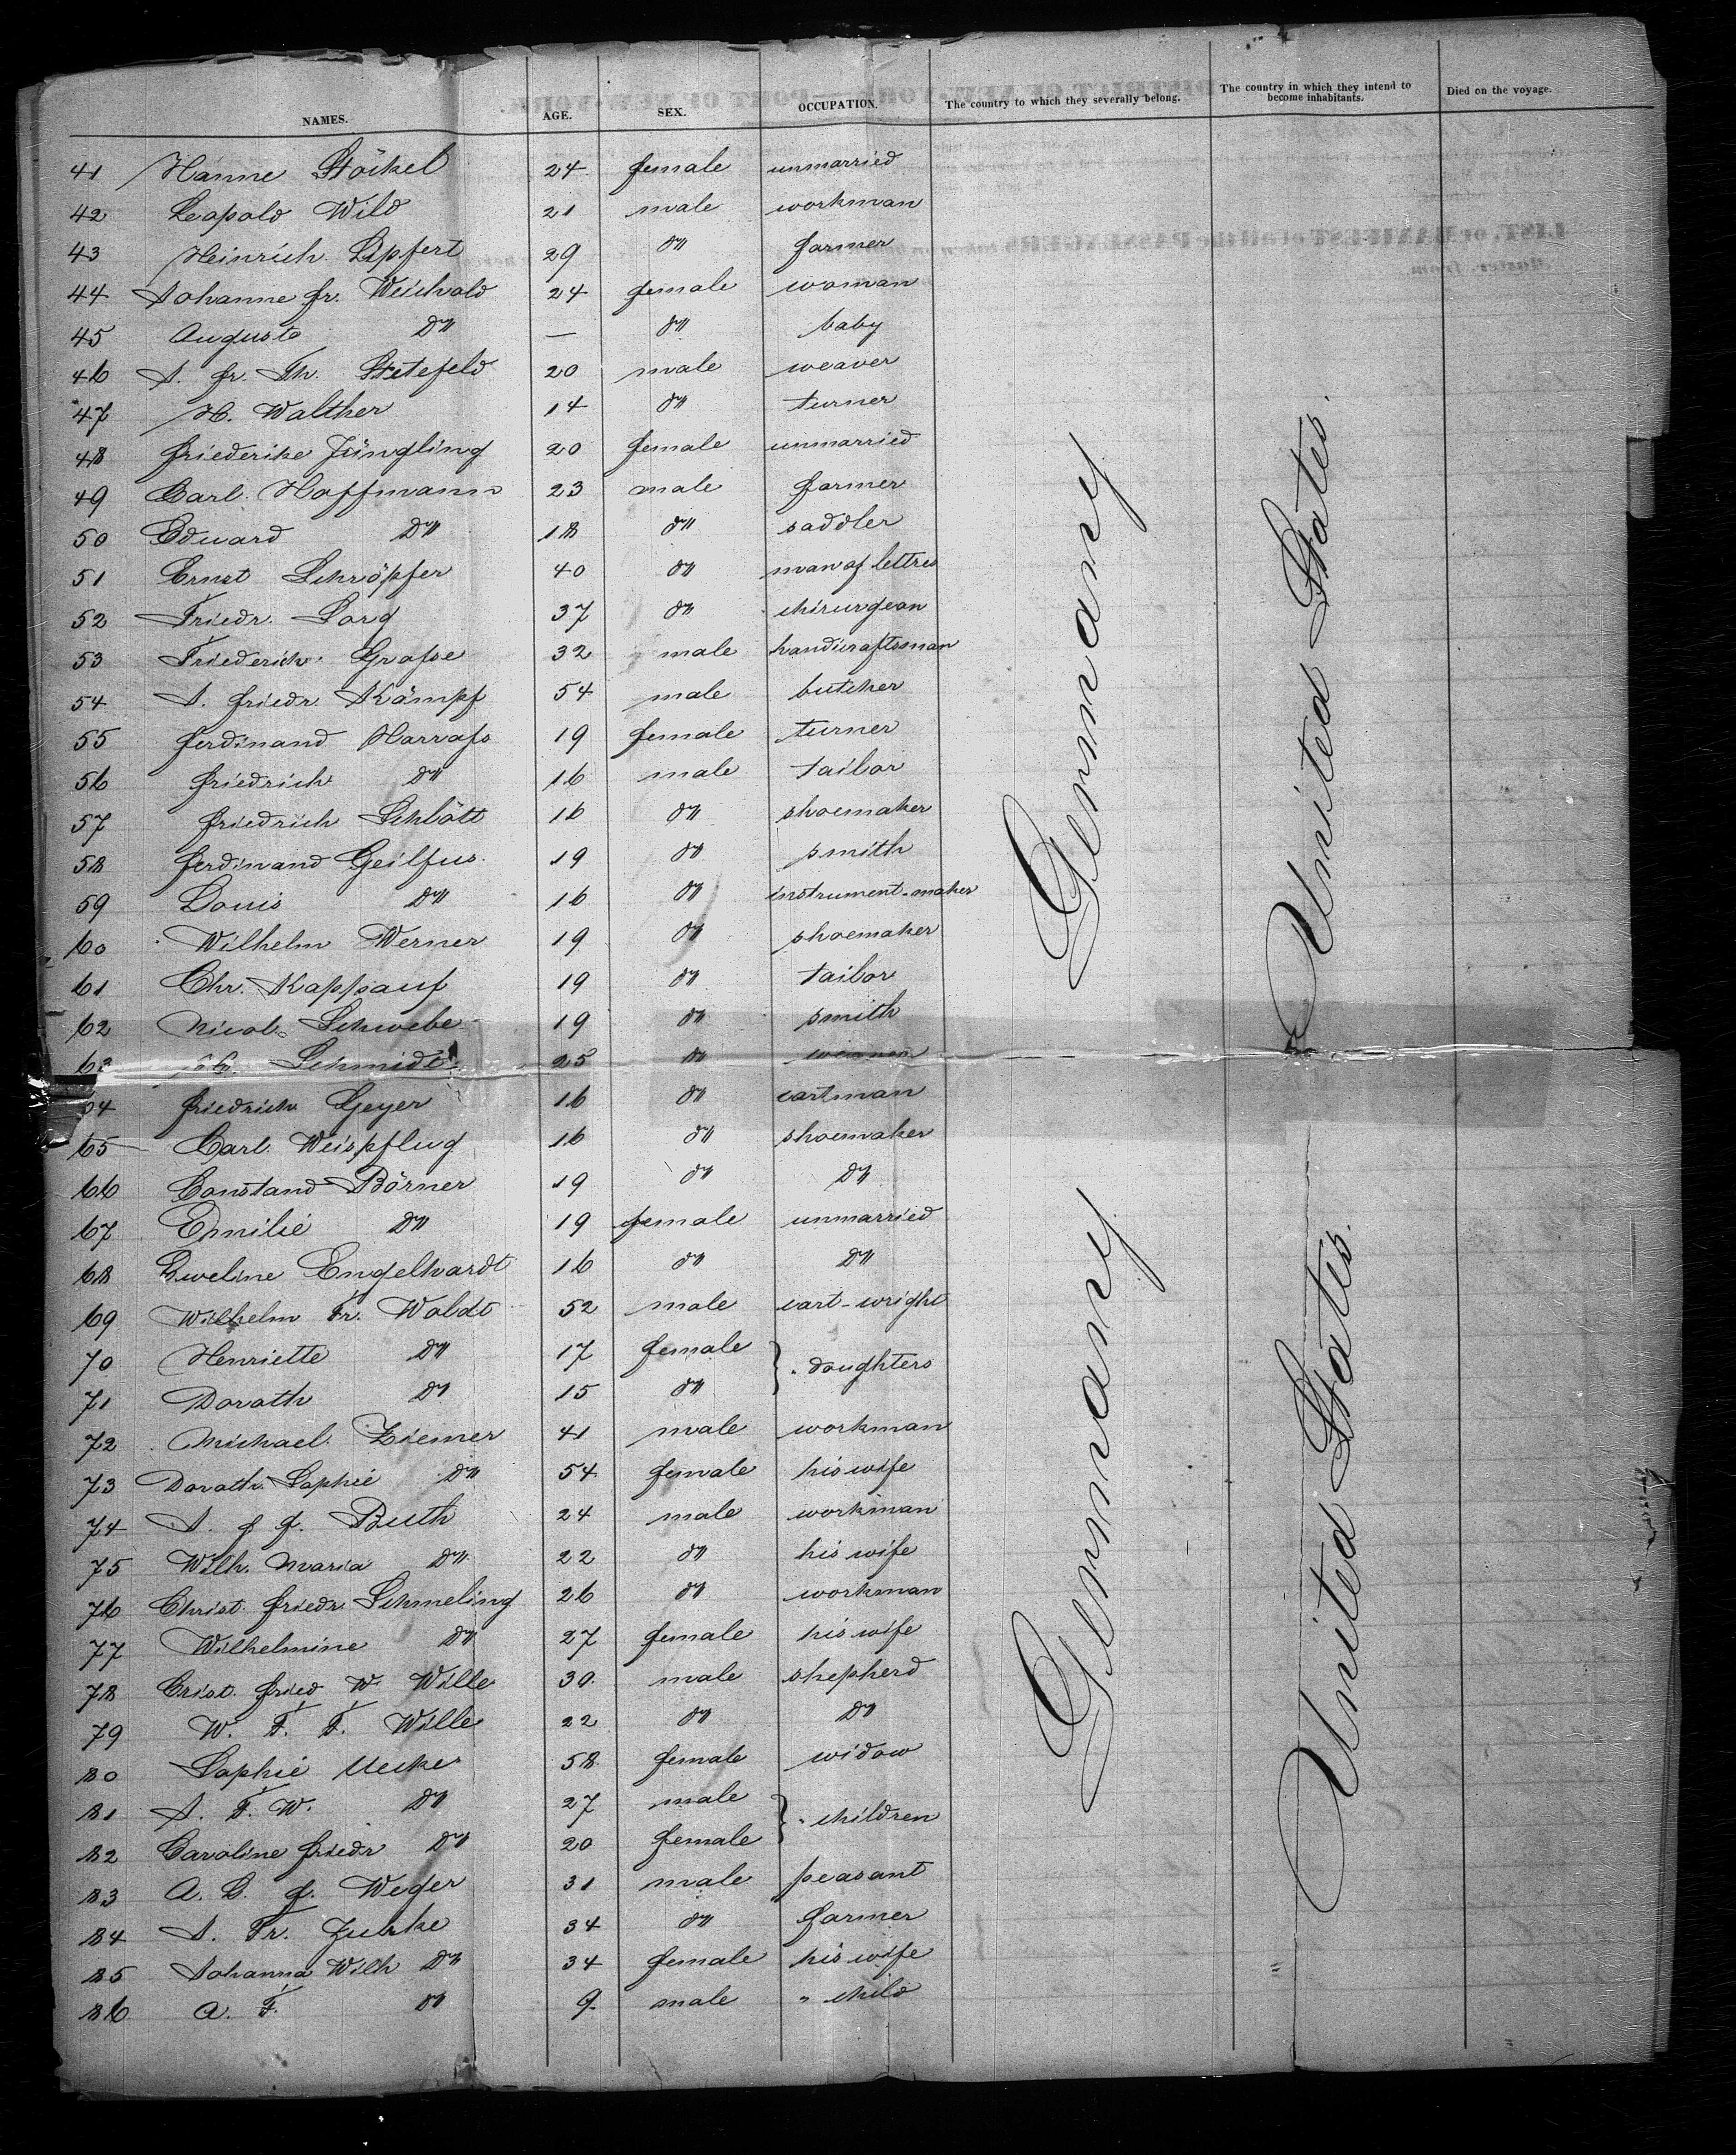 NAMES. AGE. SEX. OCCUPATION. The country to which they severally belong. The country in which they intend to become inhabitants. Died on the voyage.
41 Hanne Stöckel 24 female unmarried
42 Leopold Wild 21 male workman
43 Heinrich Lipfert 29 do farmer
44 Johanne Fr. Weichold 24 female woman
45 Auguste do — do baby
46 J. Fr. Th. Stetefeld 20 male weaver
47 H. Walther 14 do turner
48 Friederike Jüngling 20 female unmarried
49 Carl Hoffmann 23 male farmer
50 Eduard do 18 do saddler
51 Ernst Schröpfer 40 do man of lettres
52 Friedr. Sorg 37 do chirurgeon
53 Friederich Grosse 32 male handicraftsman
54 J. Friedr. Kämpf 54 male butcher
55 Ferdinand Harrass 19 female turner
56 Friedrich do 16 male tailor
57 Friedrich Schlött 16 do shoemaker
58 Ferdinand Geilfus 19 do smith
59 Louis do 16 do instrument-maker
60 Wilhelm Werner 19 do shoemaker
61 Chr. Kappauf 19 do tailor
62 Nicol. Schwebe 19 do smith
Schmidt 25 do
64 Friedrich Geyer 16 do cartman
65 Carl Weispflug 16 do shoemaker
66 Constand Börner 19 do do
67 Emilie do 19 female unmarried
68 Eveline Engelhardt 16 do do
69 Wilhelm Fr. Woldt 52 male cart-wright
70 Henriette do 17 female daughters
71 Doroth do 15 do
72 Michael Ziemer 41 male workman
73 Doroth. Sophie do 54 female his wife
74 J. F. F. Buth 24 male workman
75 Wilh. Maria do 22 do his wife
76 Christ. Friedr. Schmeling 26 do workman
77 Wilhelmine do 27 female his wife
78 Crist. Fried W. Wille 30 male shepherd
79 W. F. F. Wille 22 do do
80 Sophie Uecke 58 female widow
81 J. F. W. do 27 male " children
82 Caroline Friedr do 20 female
83 A. D. F. Weger 31 male peasant
84 J. Fr. Zuhke 34 do farmer
85 Johanna Wilh do 34 female his wife
86 A. F. do 9 male " child
Germany
United States.
Germany
United States.